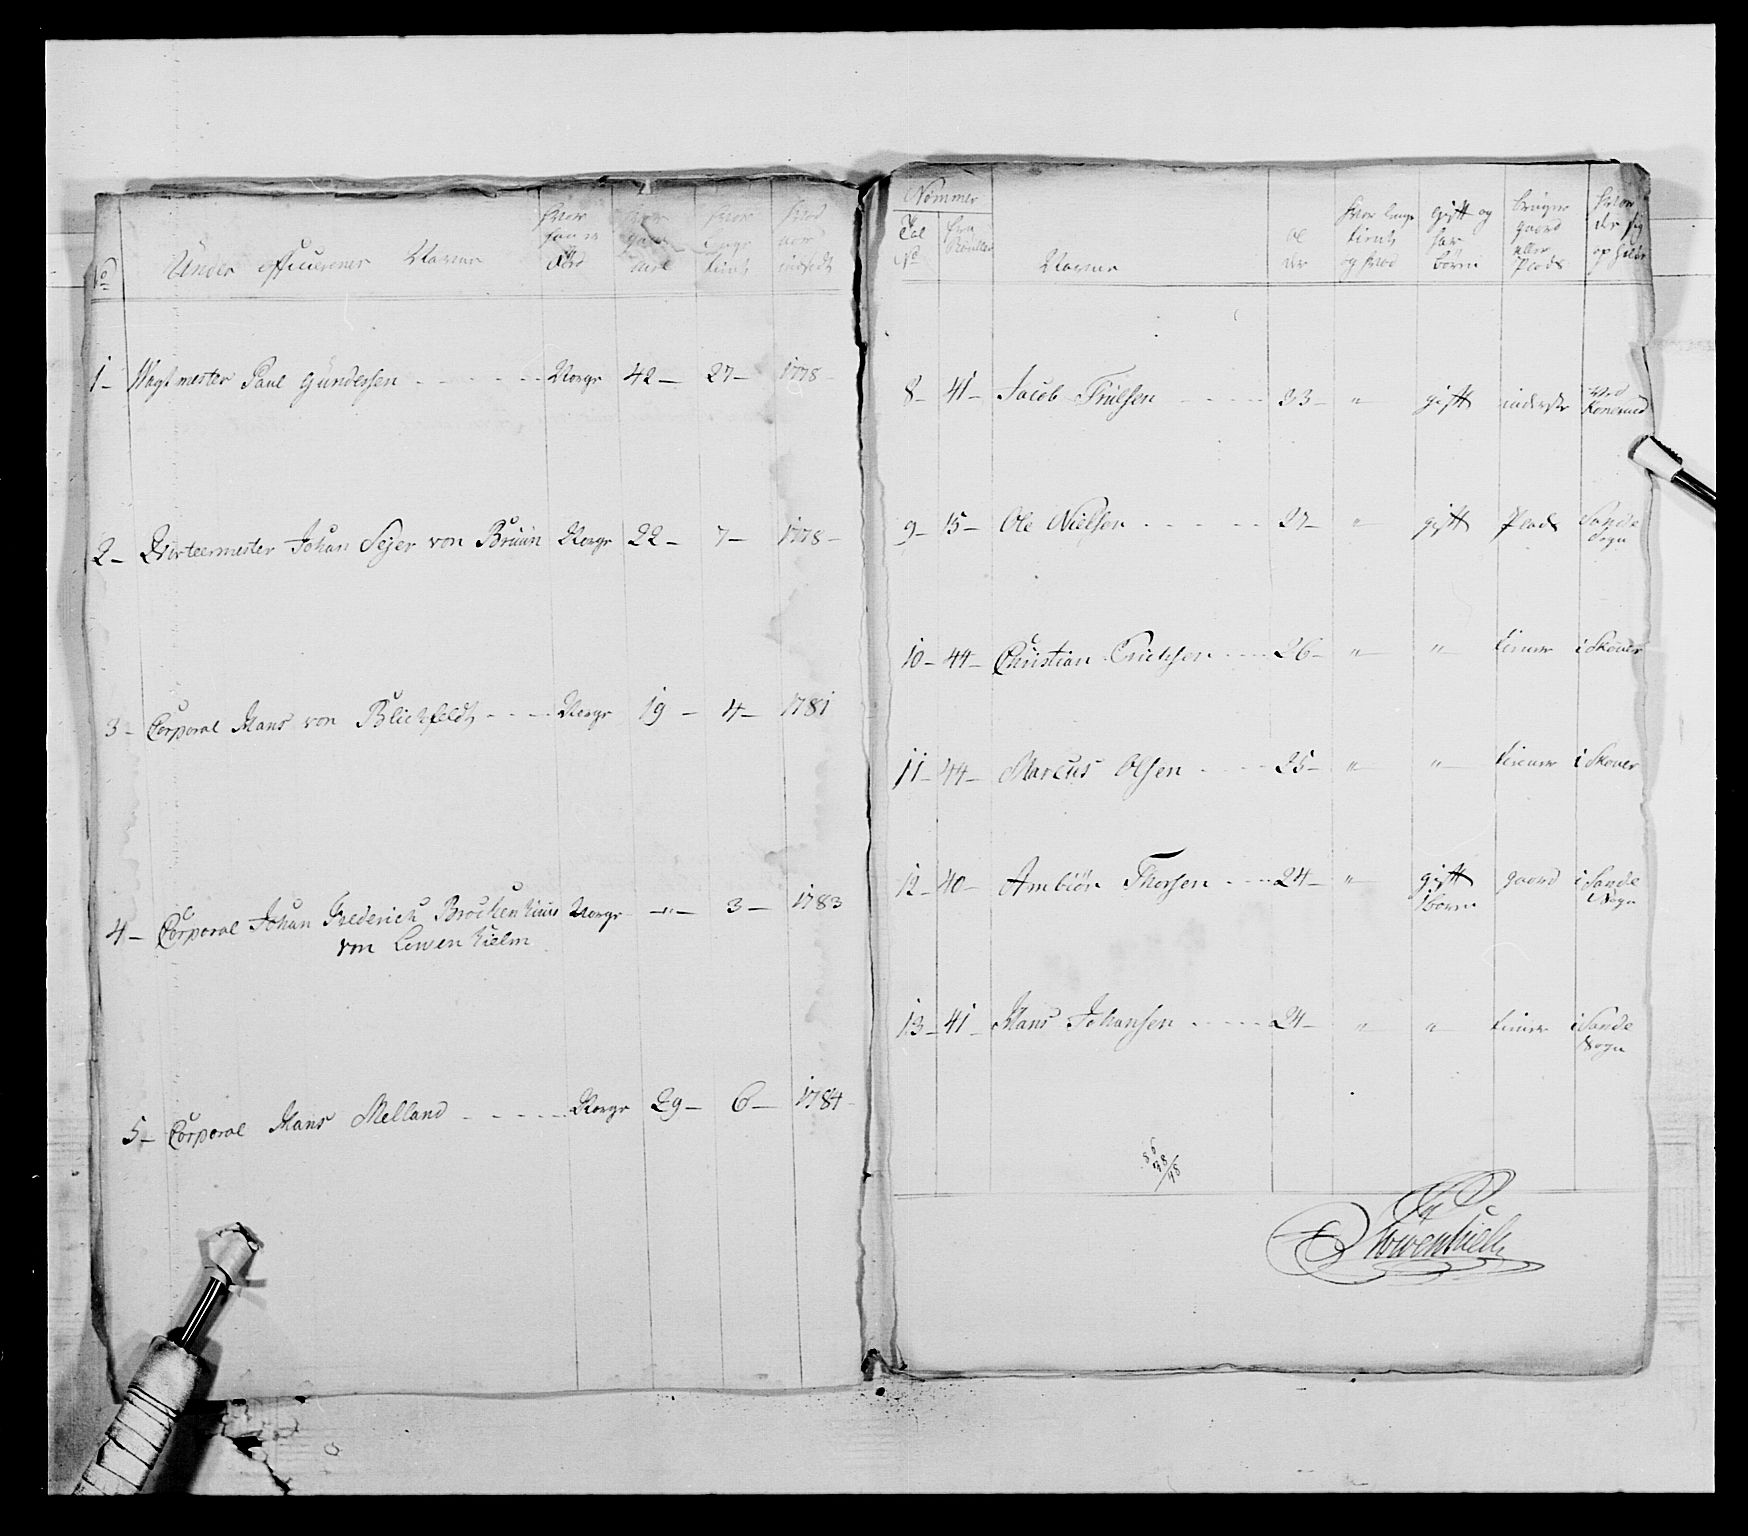 No
Under officerernes Navne
hvor
han er
født
hvor
gam̄el
hvor
længe
tient
hvad
aar
indsadt
1 - Wagtmester Paul Gundersen - - - - - - Norge 42 - 27 - 1778
2 - Qvarteermester Johan Sejer von Bruun Norge 22 - 7 - 1778 -
3 - Corporal Hans von Blichfeldt - - - - Norge 19 - 4 - 1781
4 - Corporal Johan Frederich Brockenhuus Norge - " - 3 - 1783
von Lewenhielm
5 - Corporal Hans Melland - - - - - - Norge 29 - 6 - 1784
Nommer
Tal
No
fra
Rullen
Navne
al
der
hvor længe
tient
og hvad
gift og
har
børn
bruger
gaard
eller
Plads
hvor
der sig
opholder
8 - 41 - Jacob Trulsen - - - - 33 - " gift inderste ved
9 - 15 - Ole Nielsen - - - - - - 27 - " gift Plads Sande
Sogn
10 - 44 - Christian Erichsen - - - 26 - " " tiener i Skouer
11 - 44 - Marcus Olsen - - - - 25 - " " tiener i Skouer
12 - 40 - Ambiør Thorsen - - - 24 - " gift gaard i Sande
1 børn Sogn
13 - 41 - Hans Johansen - - - - 24 - " " tiener i Sande
Sogn